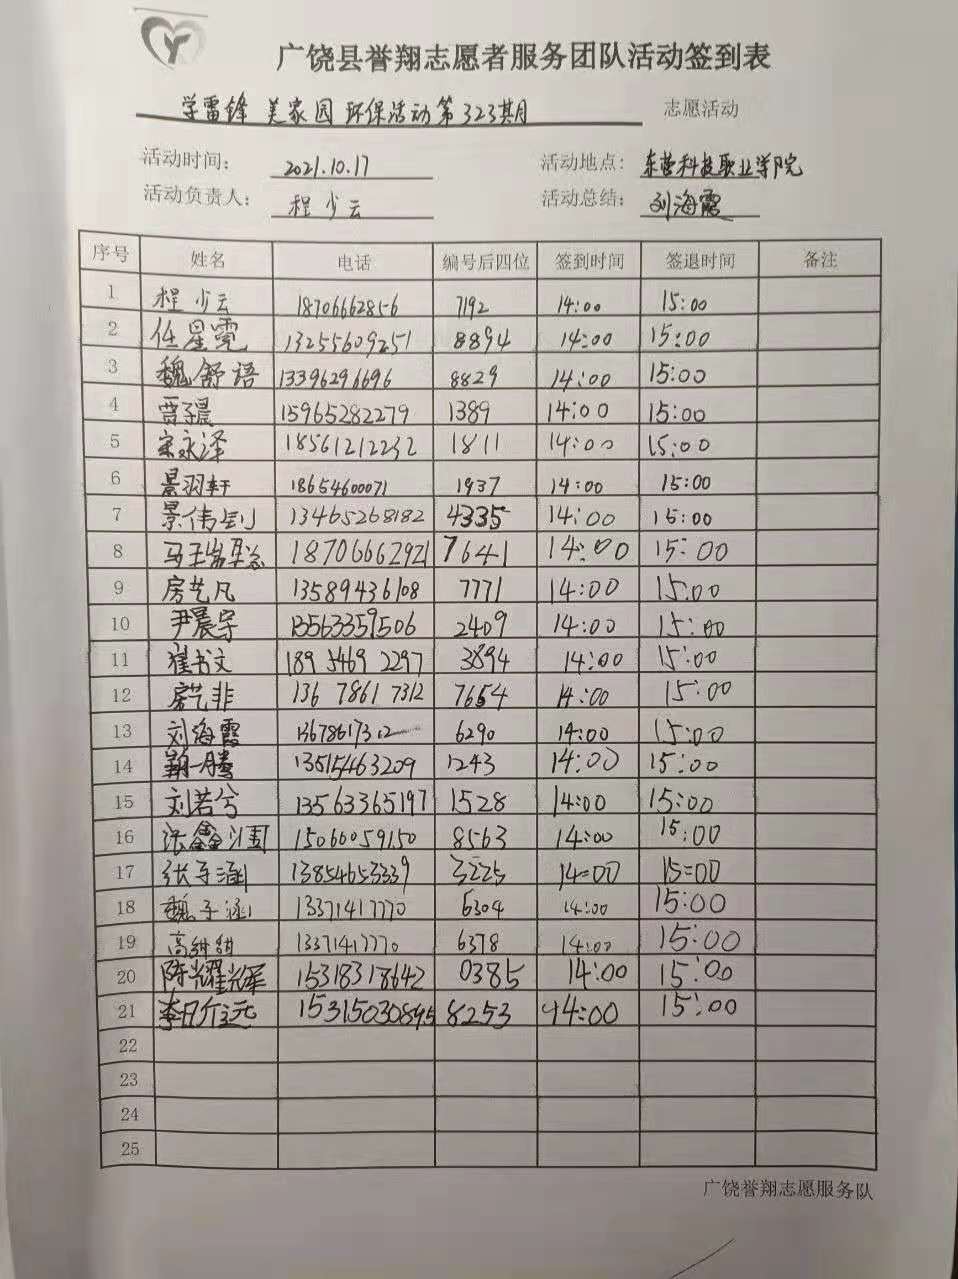 广饶县誉翔志愿者服务团队活动签到表
学雷锋 美家园 环保活动第323期 志愿活动
活动时间: 2021.10.17 活动地点: 东营科技职业学院
活动负责人: 程少云 活动总结: 刘海霞
序号 姓名 电话 编号后四位 签到时间 签退时间 备注
1 程少云 18706662856 7192 14:00 15:00
2 任星霓 13255609251 8894 14:00 15:00
3 魏舒语 13396296696 8829 14:00 15:00
4 贾子晨 15965282279 1389 14:00 15:00
5 宋永泽 18561212232 1811 14:00 15:00
6 景羽轩 18654600071 1937 14:00 15:00
7 景伟钊 13465268182 4335 14:00 15:00
8 18706662921 7641 14:00 15:00
9 房艺凡 13589436108 7771 14:00 15:00
10 尹晨宇 13563359506 2409 14:00 15:00
11 翟书文 189 5469 2297 3894 14:00 15:00
12 房艺非 136 7861 7312 7654 14:00 15:00
13 刘海霞 13678617312 6290 14:00 15:00
14 13515463209 1243 14:00 15:00
15 刘若兮 13563365197 1528 14:00 15:00
16 张鑫 15066059150 8563 14:00 15:00
17 张子涵 13854653339 3225 14=00 15=00
18 魏子涵 13371417770 6304 14:00 15:00
19 高甜甜 13371417770 6378 14:00 15:00
20 陈耀辉 15318318642 0385 14:00 15:00
21 15315030895 8253 14:00 15:00
22
23
24
25
广饶誉翔志愿服务队